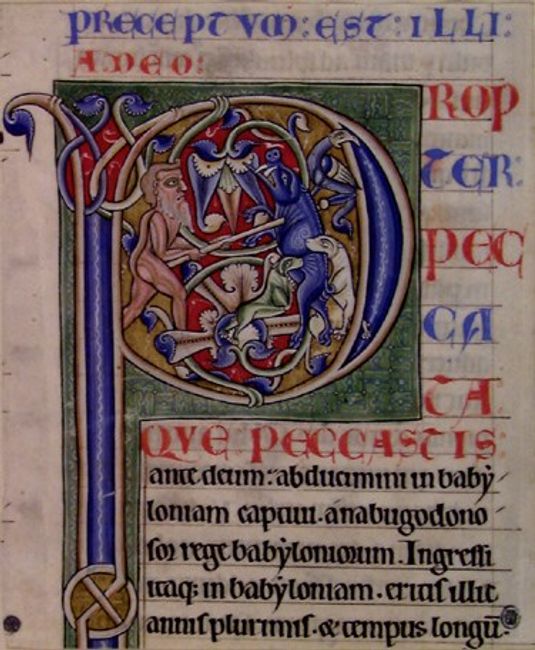 PRECEPTVM: EST: ILLI:
A DEO:
PROP
TER:
PEC
CA
TA
QVE PECCASTIS:
ante deum: abducimini in baby
loniam captiui. a nabugodono
sor rege babyloniorum. Ingressi
itaq; in babyloniam. eritis illic
annis plurimis. & tempus longū.